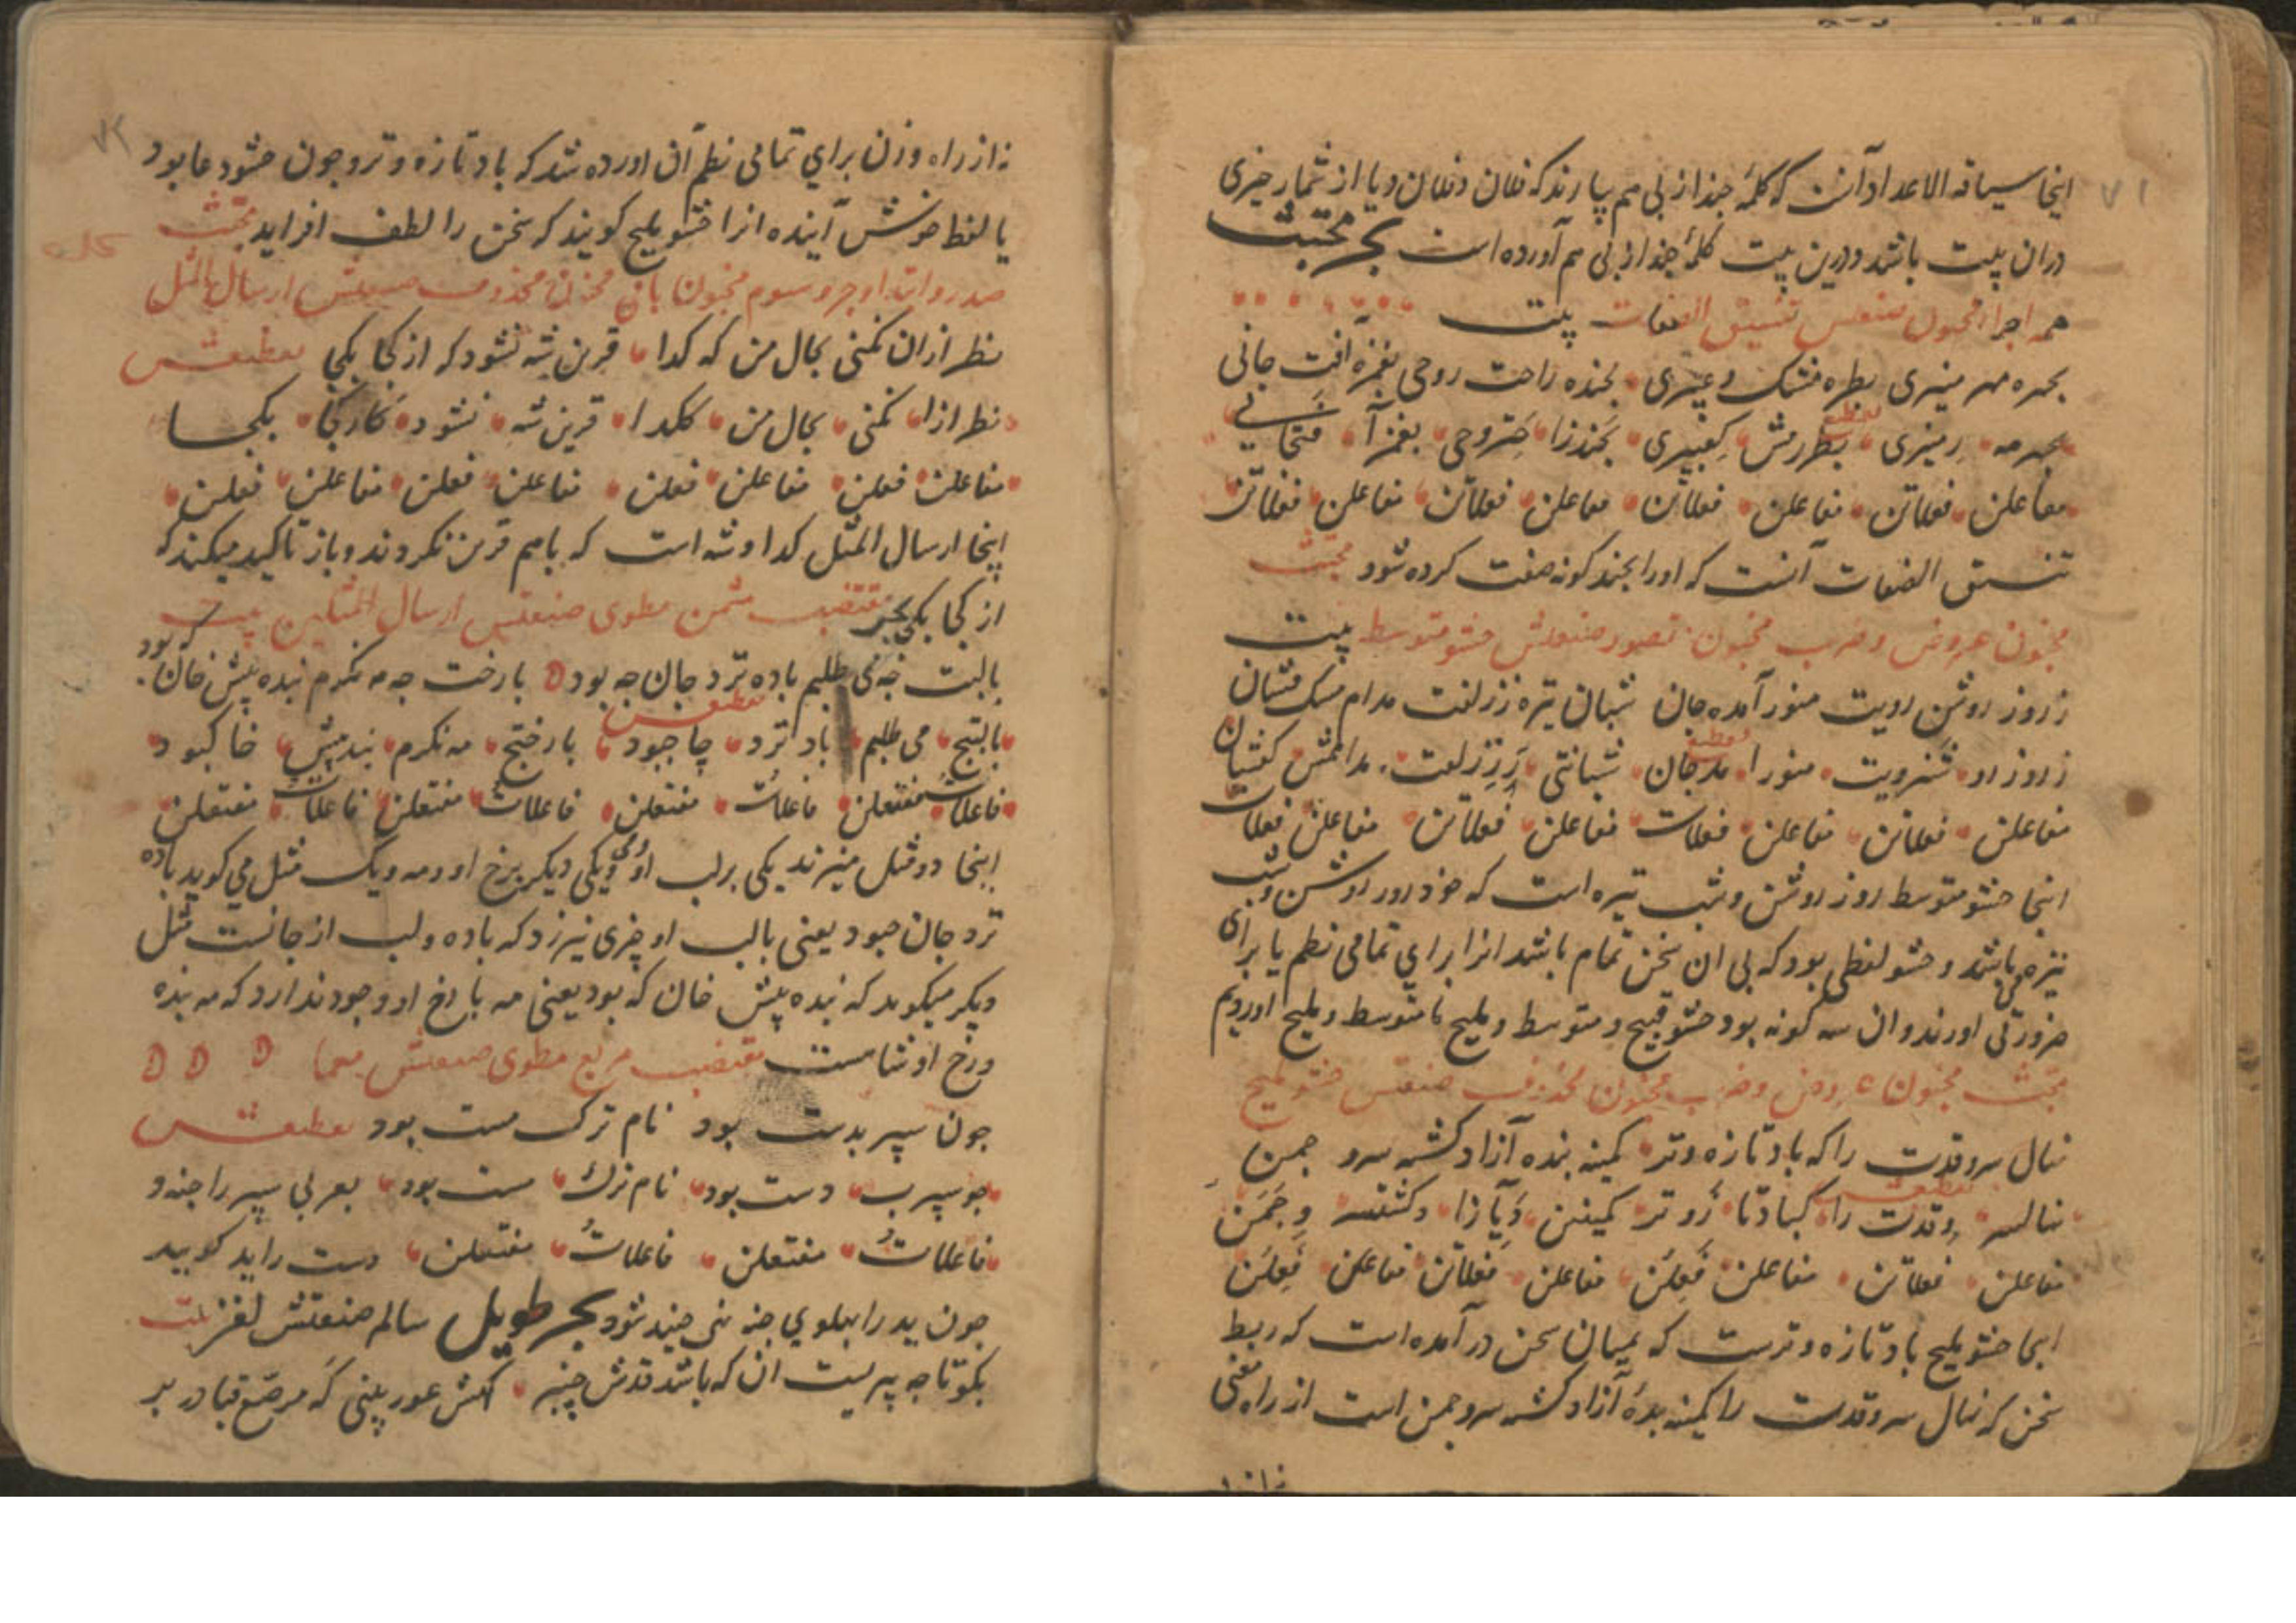 ۷۱
اینجا سیاقه الاعداد آنست که کلمهٔ چند از پی هم بیارند که فلان و فلان و یا از شمار چیزی
دران بیت باشد و درین بیت کلمهٔ چند از پی هم آورده است بحر مجتث
همه اجزا مخبون صنعتش تنسیق الصفات بیت
بچهره مهر منیری بطره مشک و عبیری بخنده راحت روحی بغمزه آفت جانی
تقطیع
بچهر مه رمنیری بطررمش کعبیری بخندرا حتروحی بغمزآ فتجانی
مفاعلن فعلاتن مفاعلن فعلاتن مفاعلن فعلاتن مفاعلن فعلاتن
تنسیق الصفات آنست که اورا بچند کونه صفت کرده شود مجتث
مخبون عروض و ضرب مخبون مقصور صنعتش حشو متوسط بیت
ز روز روشن رویت منور آمده جان شبان تیره ززلفت مدام مشک فشان
تقطیع
زروزرو شنرویت منورا مدجان شبانتی رززلفت مدامش کفشان
مفاعلن فعلاتن مفاعلن فعلات مفاعلن فعلاتن مفاعلن فعلات
اینجا حشو متوسط روز روشن و شب تیره است که خود روز روشن و شب
تیره می باشد و حشو لفظی بود که بی ان سخن تمام باشد انرا برای تمامی نظم یا برای
ضرورتی اورند و ان سه کونه بود حشو قبیح و متوسط و ملیح تا متوسط و ملیح اوردیم
مجتث مخبون عروض و ضرب مخبون محذوف صنعتش حشو ملیح
نهال سرو قدت را که باد تازه و تر کمینه بنده آزاد کشته سرو چمن
تقطیعش
نهالسر وقدت را کبادتا زوتر کمینبن دیآزا دکشتسر وچمن
مفاعلن فعلاتن مفاعلن فعلن مفاعلن فعلاتن مفاعلن فعلن
اینجا حشو ملیح باد تازه و ترست که بمیان سخن در آمده است که ربط
سخن که نهال سرو قدت را کمینه بندهٔ آزاد کشته سرو چمن است از راه معنی
۷۲
نه از راه وزن برای تمامی نظم آن اورده شد که باد تازه و تر و چون حشو دعا بود
یا لفظ خوش آینده انرا حشو ملیح کویند که سخن را لطف افزاید مجتث
صدر و ابتدا و جزو سوم مخبون باقی مخبون محذوف صنعتش ارسال المثل
نظر ازان نکنی بحال من که کدا قرین شه نشود که از کجا بکجا تقطیعش
نظر ازا نکنی بحال من ککدا قرین شه نشود کازکجا بکجا
مفاعلن فعلن مفاعلن فعلن مفاعلن فعلن مفاعلن فعلن
اینجا ارسال المثل کدا و شه است که باهم قرین نکردند و باز تاکید میکند که
از کجا بکجا بحر مقتضب مثمن مطوی صنعتش ارسال المثلین بیت
بالبت چه می طلبم باده نزد جان چه بود با رخت چه مه نکرم بنده پیش خان که بود
تقطیعش
بالبتچ می طلبم باد نزد جاچبود بارختچ مه نکرم بندپیش خاکبود
فاعلات مفتعلن فاعلات مفتعلن فاعلات مفتعلن فاعلات مفتعلن
اینجا دو مثل میزند یکی بر لب او و یکی دیکر برخ او و مه و یک مثل می کوید باده
نزد جان چبود یعنی با لب او چیزی نیرزد که باده و لب از جانست مثل
دیکر میکوید که بنده پیش خان که بود یعنی مه با رخ او وجود ندارد که مه بنده
و رخ او شاهست مقتضب مربع مطوی صنعتش معما
چون سپر بدست بود نام ترک مست بود تقطیعش
جوسپرب دست بود نام ترک مست بود بعربی سپر را جنه و
فاعلات مفتعلن فاعلات مفتعلن دست را ید کویند
چون ید را بپهلوی جنه نهی جنید شود بحر طویل سالم صنعتش لغز بیت
بکو تا چه پیریست ان که باشد قدش چنبر کهش عور بینی که مرصع قبا در بر